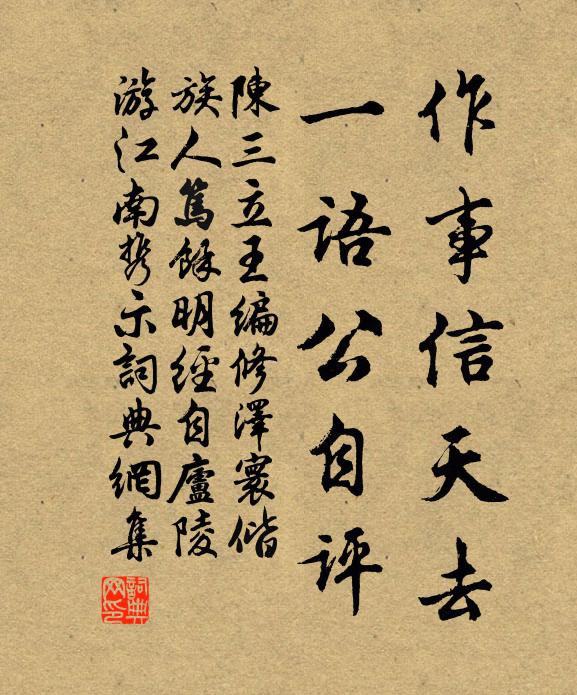 作事信天去
一語公自評
陳三立王編修澤寰偕
族人篤餘明經自廬陵
游江南攜示詞典網集
詞典
网印